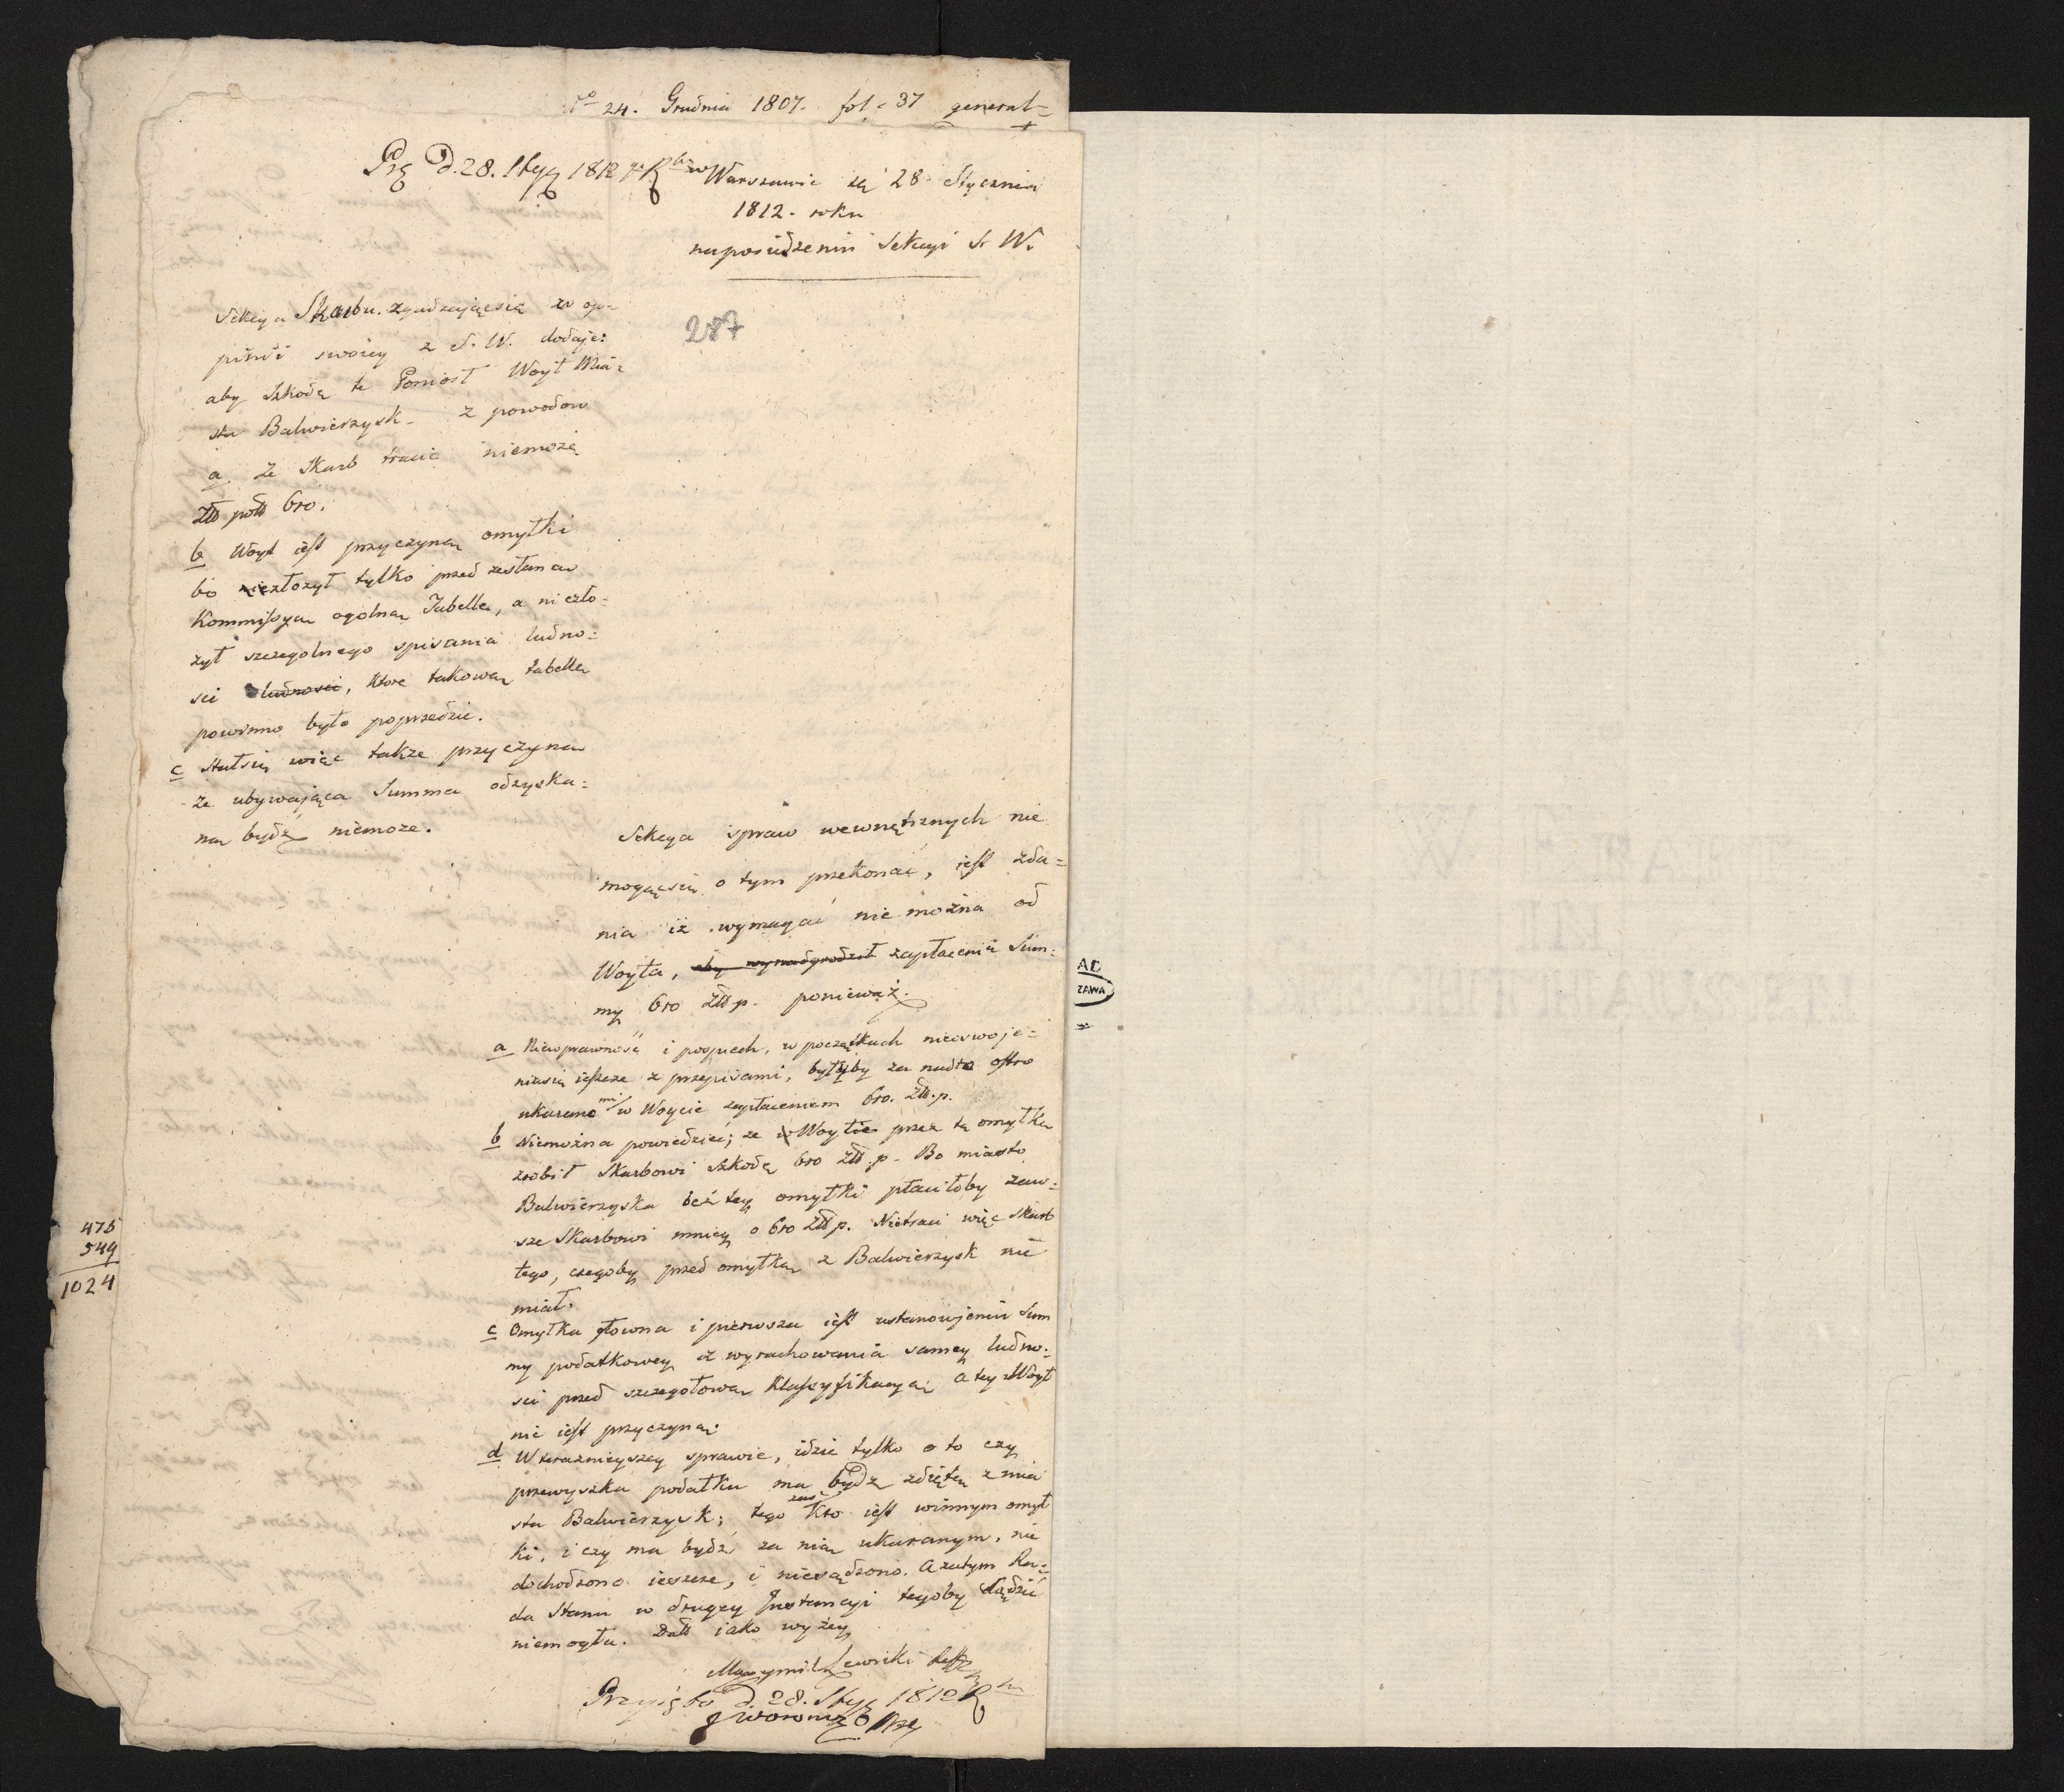 24. Grudnia 1807. fol. 37 general=
Prz D. 28. Stycz 1812
w Warszawie dn 28 Stycznia
1812. roku
na posiedzeniu Sekcyi S. W.
287
Sekcya Skarbu. zgadzającsię w op=
pinii swoiey z S. W. dodaje:
aby szkodę tę Poniosł Woyt Mia=
sta Balwierzysk. z powodow
a. Że Skarb tracić niemoże
Złł poll 610.
b Woyt iest przyczyną omyłki
bo niezłożył tylko przed zesłaną
Kommissyą ogolną Tabellę, a niezło=
żył szczegolnego spisania ludno=
sci ludnosci, ktore takową tabellę
powinno było poprzedzić.
c Stałsię więc także przyczyną
że ubywająca Summa odzyska=
ną bydź niemoże.
Sekcya spraw wewnętrznych nie
mogącsię o tym przekonać, iest zda=
nia iż wymagać nie można od
Woyta, aby wynadgrodził zapłacenia Sum=
my 610 Złł p. ponieważ.
a Niewprawność i pospiech, w początkach nieoswoje=
niasię ieszcze z przepisami, byłyby za nadto ostro
ukaranemi w Woycie zapłaceniem 610. Złł. p.
b Niemożna powiedzieć; że Woyt przez tę omyłkę
zrobił Skarbowi szkodę 610 Złł. p. Bo miasto
Balwierzyska beż tey omyłki płaciłoby zaw=
sze Skarbowi mniey o 610 Złł p. Nietraci więc Skarb
tego, czegoby przed omyłką z Balwierzysk nie
miał.
c Omyłka głowna i pierwsza iest ustanowienie Sum
my podatkowey z wyrachowania samey ludno=
sci przed szczegołową klassyfikacyą; a tey Woyt
nie iest przyczyną;
d W teraznieyszey sprawie, idzie tylko o to czy
przewyszka podatku ma bydz zdiętą z mia
sta Balwierzysk; tego zaś kto iest winnym omył
ki, i czy ma bydź za nią ukaranym, nie
dochodzono ieszcze, i niesądzono. A zatym Ra=
da Stanu w drugiey Instancyi tegoby sądzić
niemogła. Datt iako wyżey
Maxymil Lewicki
Przyięto d. 28. Stycz 1812
J Woronicz
475
549
1024
AD
ZAWA